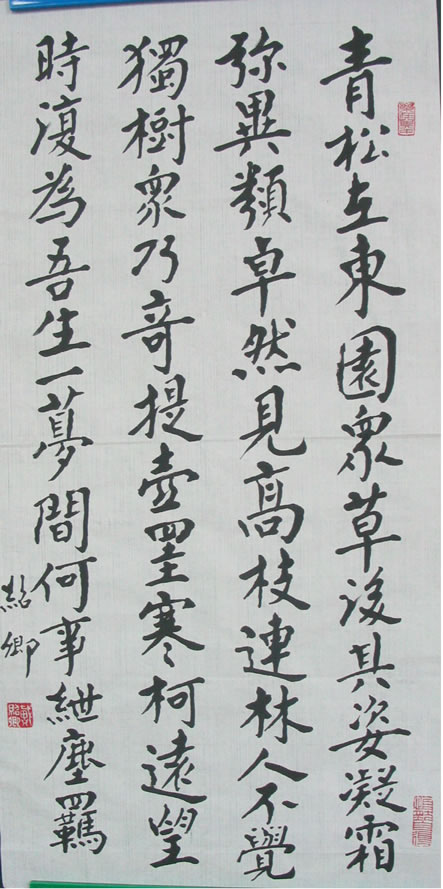 青松在東園衆草没其姿凝霜
弥異類卓然見高枝連林人不覺
獨樹衆乃奇提壺罣寒柯遠望
時復為吾生一夢間何事紲塵羈
紹卿